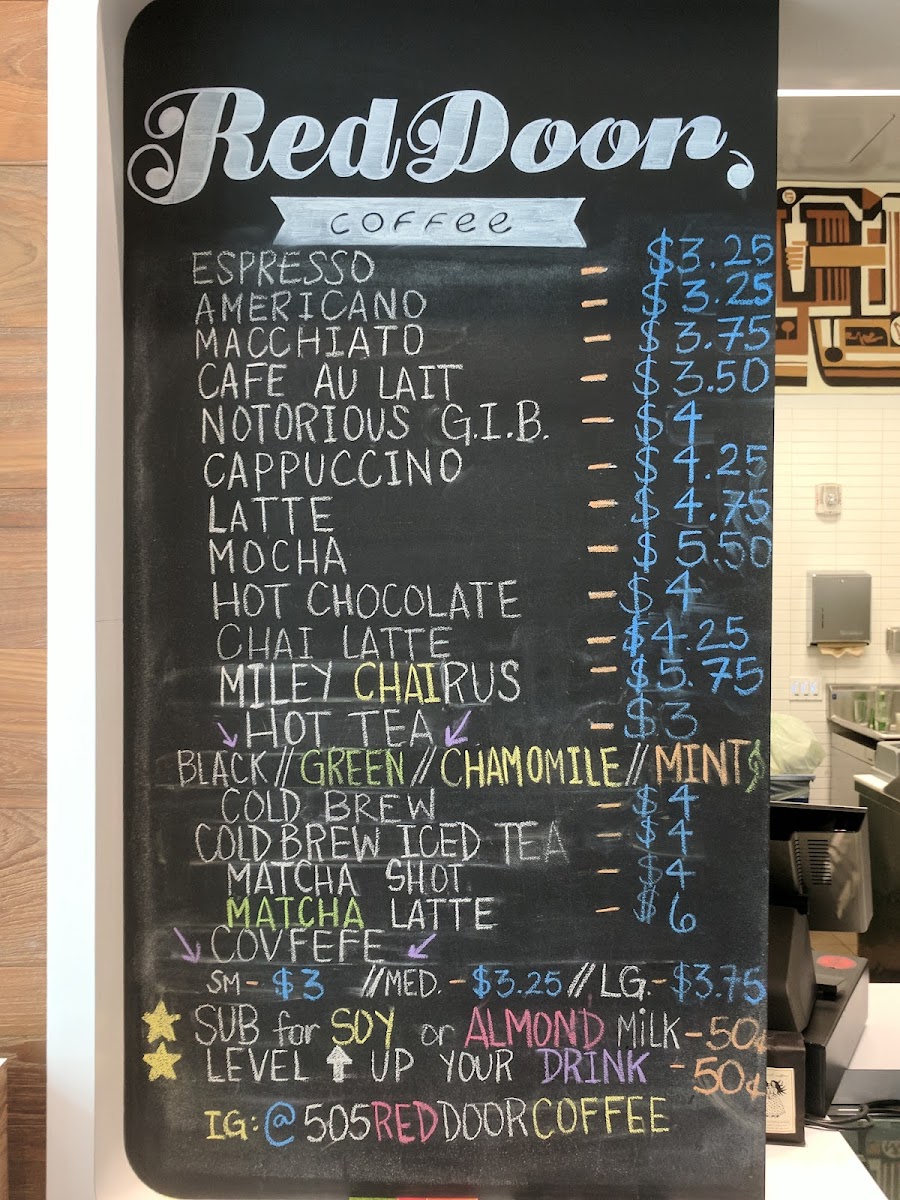 Red Door
COFFEE
ESPRESSO - $3.25
AMERICANO - $3.25
MACCHIATO - $3.75
CAFE AU LAIT - $3.50
NOTORIOUS G.I.B. - $4
CAPPUCCINO - $4.25
LATTE - $4.75
MOCHA - $5.50
HOT CHOCOLATE - $4
CHAI LATTE - $4.25
MILEY CHAIRUS - $5.75
HOT TEA - $3
BLACK // GREEN // CHAMOMILE // MINT
COLD BREW - $4
COLD BREW ICED TEA - $4
MATCHA SHOT - $4
MATCHA LATTE - $6
COVFEFE
SM - $3 // MED. - $3.25 // LG. - $3.75
SUB for SOY or ALMOND MiLK - 50¢
LEVEL UP YOUR DRINK - 50¢
IG: @505REDDOORCOFFEE